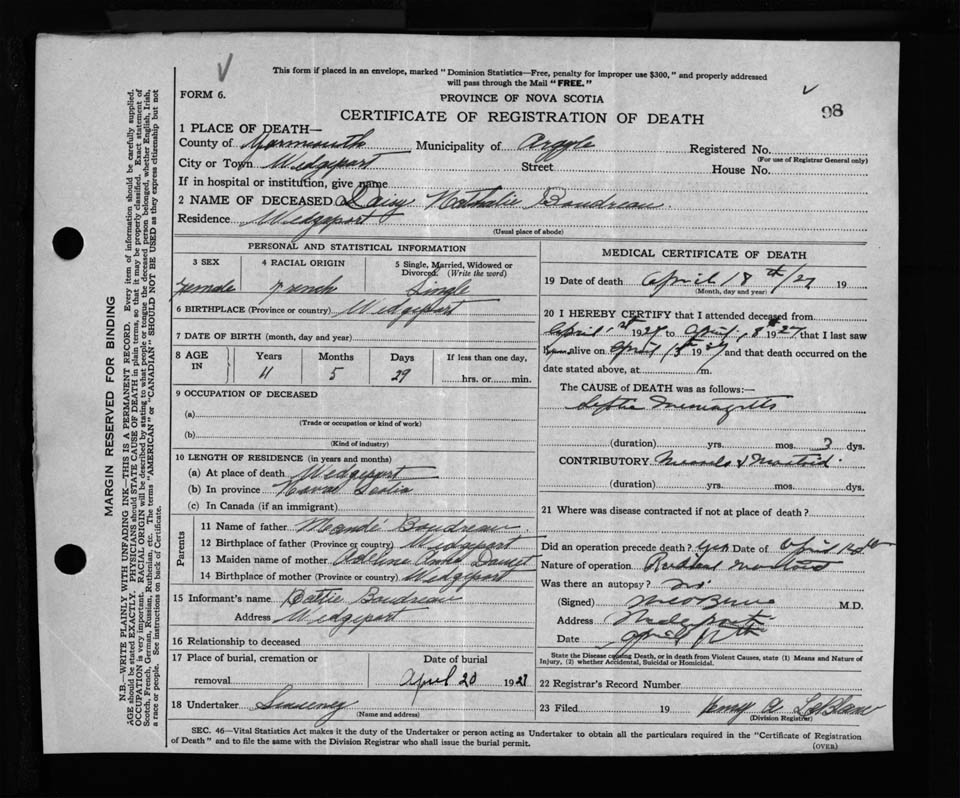 This form if placed in an envelope, marked "Dominion Statistics—Free, penalty for improper use $300," and properly addressed
will pass through the Mail "FREE."
FORM 6.
PROVINCE OF NOVA SCOTIA
98
CERTIFICATE OF REGISTRATION OF DEATH
1 PLACE OF DEATH—
County of Yarmouth Municipality of Argyle Registered No.
(For use of Registrar General only)
City or Town Wedgeport Street House No.
If in hospital or institution, give name
2 NAME OF DECEASED Daisy Nathalie Boudreau
Residence Wedgeport
(Usual place of abode)
PERSONAL AND STATISTICAL INFORMATION
3 SEX 4 RACIAL ORIGIN 5 Single, Married, Widowed or
Divorced. (Write the word)
Female French Single
6 BIRTHPLACE (Province or country) Wedgeport
7 DATE OF BIRTH (month, day and year)
8 AGE IN Years Months Days If less than one day,
11 5 29 hrs. or min.
9 OCCUPATION OF DECEASED
(a)
(Trade or occupation or kind of work)
(b)
(Kind of industry)
10 LENGTH OF RESIDENCE (in years and months)
(a) At place of death Wedgeport
(b) In province Nova Scotia
(c) In Canada (if an immigrant)
Parents
11 Name of father Mandé Boudreau
12 Birthplace of father (Province or country) Wedgeport
13 Maiden name of mother
14 Birthplace of mother (Province or country) Wedgeport
15 Informant's name Boudreau
Address Wedgeport
16 Relationship to deceased
17 Place of burial, cremation or removal Date of burial
April 20 1927
18 Undertaker Sweeney
(Name and address)
MEDICAL CERTIFICATE OF DEATH
19 Date of death April 18th/27 19
(Month, day and year)
20 I HEREBY CERTIFY that I attended deceased from
April 1st 1927 to April 18th 1927 that I last saw
alive on April 1927 and that death occurred on the
date stated above, at m.
The CAUSE of DEATH was as follows:—
Septic Meningitis
(duration) yrs. mos. 3 dys.
CONTRIBUTORY Measles & Mastoid
(duration) yrs. mos. dys.
21 Where was disease contracted if not at place of death?
Did an operation precede death? yes Date of April 14th
Nature of operation Radical Mastoid
Was there an autopsy? No
(Signed) M.D.
Address Wedgeport
Date April
State the Disease causing Death, or in death from Violent Causes, state (1) Means and Nature of
Injury, (2) whether Accidental, Suicidal or Homicidal.
22 Registrar's Record Number
23 Filed 19 Henry A LeBlanc
(Division Registrar)
SEC. 46—Vital Statistics Act makes it the duty of the Undertaker or person acting as Undertaker to obtain all the particulars required in the "Certificate of Registration
of Death" and to file the same with the Division Registrar who shall issue the burial permit.
(OVER)
MARGIN RESERVED FOR BINDING
N.B.—WRITE PLAINLY WITH UNFADING INK—THIS IS A PERMANENT RECORD. Every item of information should be carefully supplied.
AGE should be stated EXACTLY. PHYSICIANS should STATE CAUSE OF DEATH in plain terms, so that it may be properly classified. Exact statement of
OCCUPATION is very important. RACIAL ORIGIN will be described by stating to what people or tongue the deceased person belonged, whether English, Irish,
Scotch, French, German, Russian, Ruthenian, etc. The terms "AMERICAN" or "CANADIAN" SHOULD NOT BE USED as they express citizenship but not
a race or people. See instructions on back of Certificate.